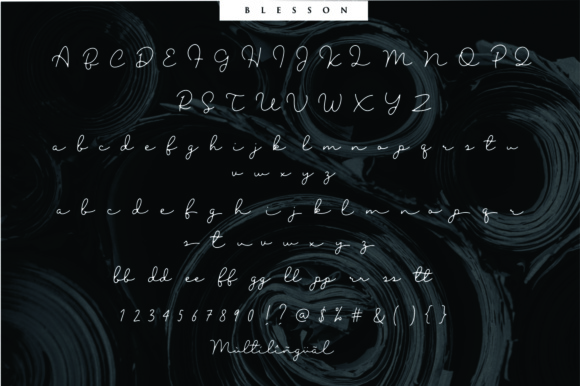 BLESSON
A B C D E F G H I J K L M N O P Q
R S T U V W X Y Z
a b c d e f g h i j k l m n o p q r s t u
v w x y z
a b c d e f g h i j k l m n o p q r
s t u v w x y z
bb dd ee ff gg ll pp rr ss tt
1 2 3 4 5 6 7 8 9 0 ! ? @ $ % # & ( ) { }